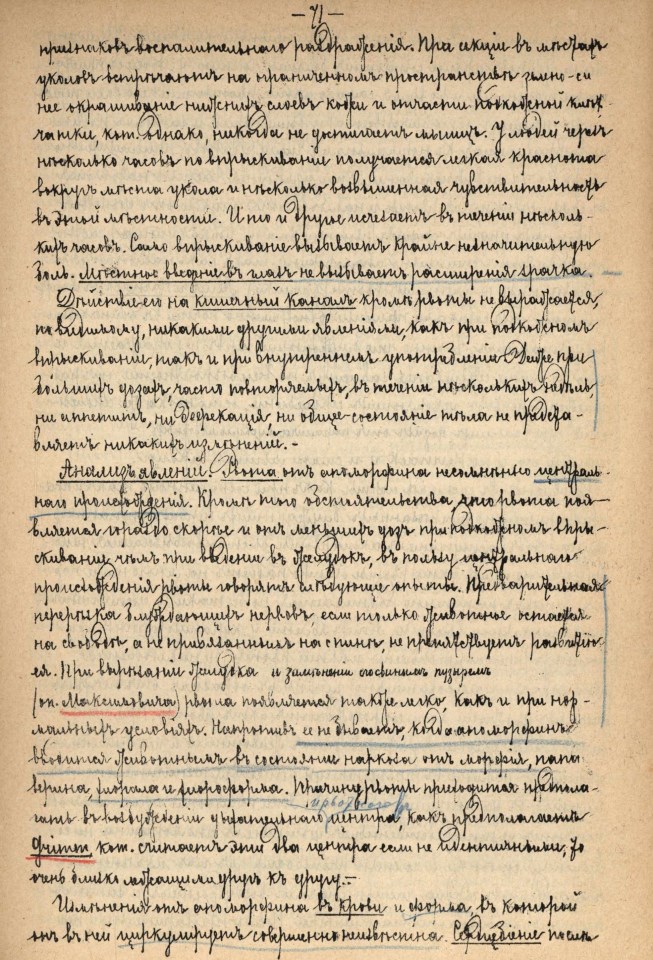 — 71 —
признаковъ воспалительнаго раздраженія. При секціи въ мѣстахъ
уколовъ встрѣчаютъ на ограниченномъ пространствѣ зелено-си
нее окрашиваніе нижнихъ слоевъ кожи и отчасти подкожной клѣт
чатки, кот. однако, никогда не достигаетъ мышцъ. У людей черезъ
нѣсколько часовъ по впрыскиваніи получается легкая краснота
вокругъ мѣста укола и нѣсколько возвышенная чувствительность
въ этой мѣстности. И то и другое исчезаетъ въ теченіи нѣсколь-
кихъ часовъ. Само впрыскиваніе вызываетъ крайне незначительную
боль. Мѣстное введеніе въ глазъ не вызываетъ расширенія зрачка.
Дѣйствіе его на кишечный каналъ кромѣ рвоты не выражается,
по видимому, никакими другими явленіями, какъ при подкожномъ
впрыскиваніи, такъ и при внутреннемъ употребленіи. Даже при
большихъ дозахъ, часто повторяемыхъ, въ теченіи нѣсколькихъ недѣль,
ни аппетитъ, ни дефекація, ни общее состояніе тѣла не предста-
вляетъ никакихъ измѣненій. -
Анализъ явленій. Рвота отъ апоморфина несомнѣнно централь-
наго происхожденія. Кромѣ того обстоятельства, что рвота поя-
вляется гораздо скорѣе и отъ меньшихъ дозъ при подкожномъ впры-
скиваніи чѣмъ при введеніи въ желудокъ, въ пользу центральнаго
происхожденія рвоты говорятъ слѣдующіе опыты. Предварительная
перерѣзка блуждающихъ нервовъ, если только животное остается
на свободѣ, а не привязаннымъ на спинѣ, не препятствуетъ развитію
ея. При вырѣзаніи желудка и замѣненіи его пузыремъ
(оп. Максимовича) рвота появляется также легко, какъ и при нор-
мальныхъ условіяхъ. Напротивъ ее не бываетъ, когда апоморфинъ
вводится животнымъ въ состояніи наркоза отъ морфія, папа
верина, хлорала и хлороформа. Причину рвоты приходится предпола-
гать въ возбужденіи дыхательнаго центра, какъ предполагаетъ
Grimm, кот. считаетъ эти два центра если не идентичными, то
очень близко лежащими другъ къ другу. -
Измѣненія отъ апоморфина въ крови и форма, въ которой
онъ въ ней циркулируетъ совершенно неизвѣстна. Сердцебіеніе послѣ